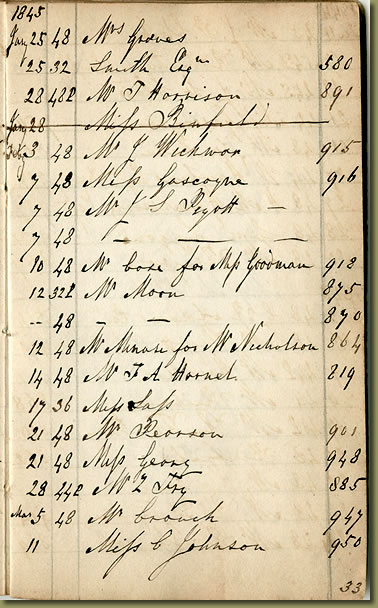 1845
Jany 25 48 Mrs Groves
25 32 Smith Esqre 580
28 48L Mr T Harrison 891
Jany 28 Miss Binfield
Feby 3 48 Mr J Wickwar 915
7 48 Miss Gascoyne 916
7 48 Mr J S Pigott —
7 48 — — —
10 48 Mr Case for Miss Goodman 918
12 32L Mr Moon 875
-- 48 — — 870
12 48 Mr Minasi for Mr Nicholson 864
14 48 Mr T A Hornet 819
17 36 Miss Lass
21 48 Mr Pearson 901
21 48 Miss Georg 948
28 44L Mr Z Fry 885
Mar 5 48 Mr Crouch 947
11 Miss C Johnson 950
33